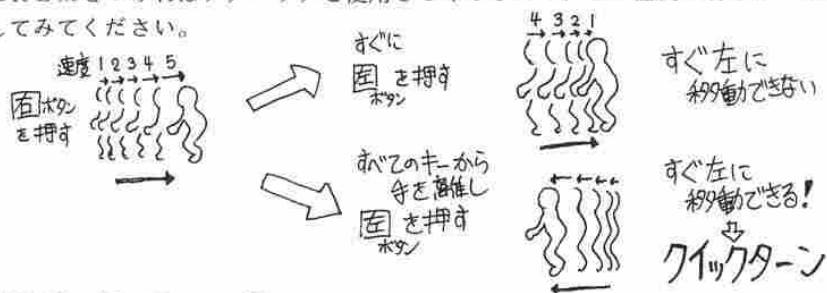 してみてください。
速度 1 2 3 4 5
右 ボタン
を押す
すぐに
左 を押す
ボタン
4 3 2 1
すぐ左に
移動できない
すべてのキーから
手を離し
左 を押す
ボタン
すぐ左に
移動できる!
クイックターン